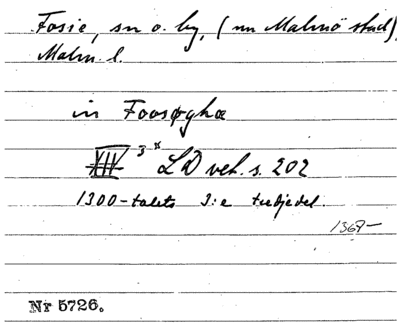 Fosie, sn o. by, (nu Malmö stad)
Malm. l.
in Foosøghæ
XIII 3 x LD vet. s. 202
1300-talets 3:e tredjedel.
1367-
Nr 5726.